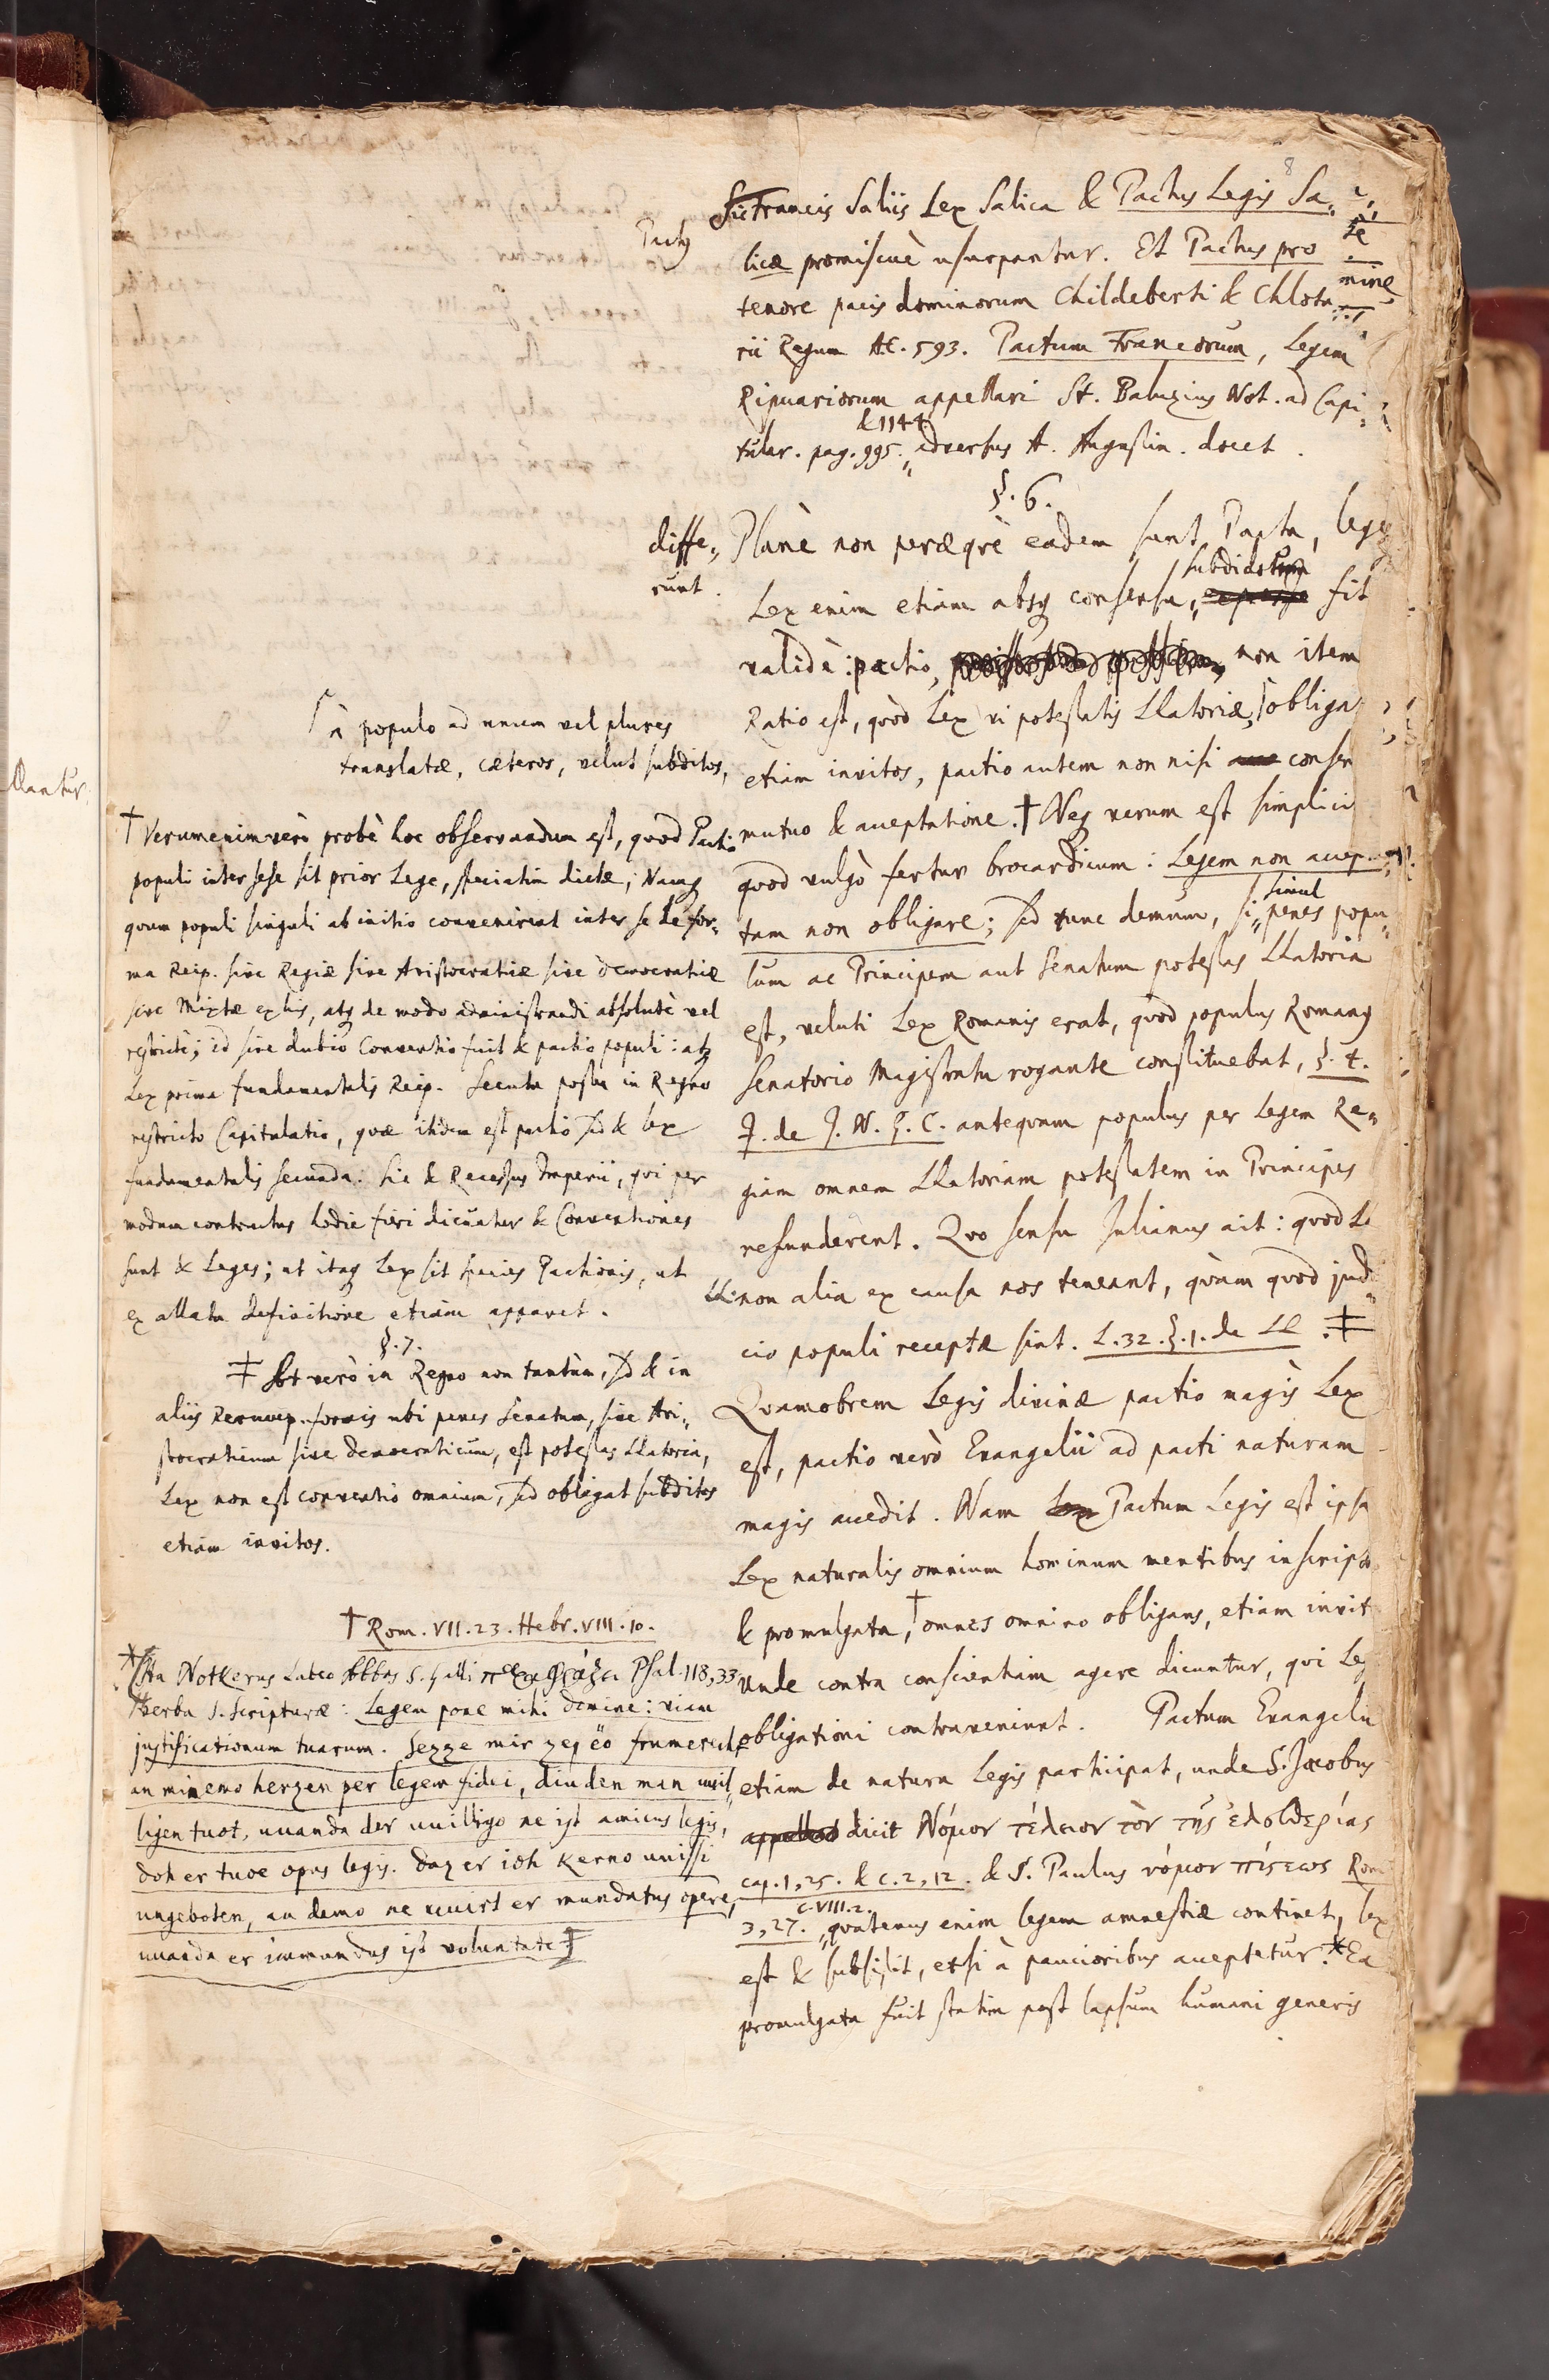 8
Sic Francis Saliis Lex Salica & Pactus Legis Sa„
licæ promiscuè usurpantur. Et Pactus pro
tenore pacis dominorum Childeberti & Chlota„
rii Regum A.C. 593. Pactum Francorum, Legem
Ripuariorum appellari St. Baluzius Not. ad Capi„
tular. pag. 995. & 1144 adversus A. Augustin. docet.
§. 6.
Planè non peræqvè eadem sunt Pacta, leges
Lex enim etiam absq consensu subditorum fit
validè: pactio, non item
Ratio est, qvòd Lex vi potestatis Llatoriæ, obliga
etiam invitos, pactio autem non nisi consen
mutuo & acceptatione. † Neq verum est simplici
qvod vulgò fertur brocardicum: Legem non accep„
tam non obligare; sed tunc demum, si simul penes popu„
lum ac Principem aut Senatum potestas Llatoria
est, veluti Lex Romanis erat, qvod populus Romanq
Senatorio Magistratu rogante constituebat, §. 4.
J. de J. N. G. C. anteqvam populus per Legem Re„
giam omnem Llatoriam potestatem in Principes
refunderent. Qvo sensu Julianus ait: qvod
LL. non alia ex causa nos teneant, qvàm qvod judi„
cio populi receptæ sint. L. 32. §. 1. de LL. ‡
Qvamobrem Legis divinæ pactio magis Lex
est, pactio verò Evangelii ad pacti naturam
magis accedit. Nam Lex Pactum Legis est ipsa
Lex naturalis omnium hominum mentibus inscripta
& promulgata, † omnes omnino obligans, etiam invit
unde contra conscientiam agere dicuntur, qvi Leg
obligationi contraveniunt. Pactum Evangelii
etiam de natura Legis participat, unde S. Jacobus
appellat dicit Νόμον τέλειον τὸν τῆς ἐλευθερίας
cap. 1, 25. & c. 2, 12. & S. Paulus νόμον πίστεως Rom
3, 27. c. VIII. 2. qvatenus enim legem amnestiæ continet, lex
est & subsistit, etsi à paucioribus acceptetur. * Ea
promulgata fuit statim post lapsum humani generis
Pactq
diffe„
runt.
à populo ad unum vel plures
translatæ, cæteros, velut subditos,
† Verumenimverò probè hoc observandum est, qvod Pactio
populi inter sese sit prior Lege, speciatim dicta; Namq
qvum populi singuli ab initio convenirent inter se de for„
ma Reip. sive Regiæ sive Aristocratiæ sive democratiæ
sive Mixtæ ex his, atq de modo administrandi absolutè vel
restrictè; id sine dubio Conventio fuit & pactio populi: atq
Lex prima fundamentalis Reip. Secuta postea in Regno
restricto Capitulatio, qvæ itidem est pactio sed & lex
fundamentalis secunda. Sic & Recessus Imperii, qvi per
modum contractus hodie fieri dicuntur & Conventiones
sunt & Leges; ut itaq Lex sit species Pactionis, ut
ex allata definitione etiam apparet.
§. 7.
‡ At verò in Regno non tantùm, sed & in
aliis Rerump. formis ubi penes Senatum, sive Ari„
stocraticum sive democraticum, est potestas Llatoria,
Lex non est conventio omnium, sed obligat subditos
etiam invitos.
† Rom. VII. 23. Hebr. VIII. 10.
* Ita Notkerus Labeo Abbas S. Galli παραφράζει Psal. 118, 33
Verba S. Scripturæ: Legem pone mihi domine: viam
justificationum tuarum. Sezze mir zej ëo frumerecht
an minemo herzen per legem fidei, diu den man uuil„
ligen tuot, uuanda der uuilligo ne ist amicus legis,
doh er tuoe opus legis. daz er ioh kerno uuissi
ungeboten, an demo ne uuirt er mundatus opere,
uuanda er immundus ist voluntate ‡
llantur.